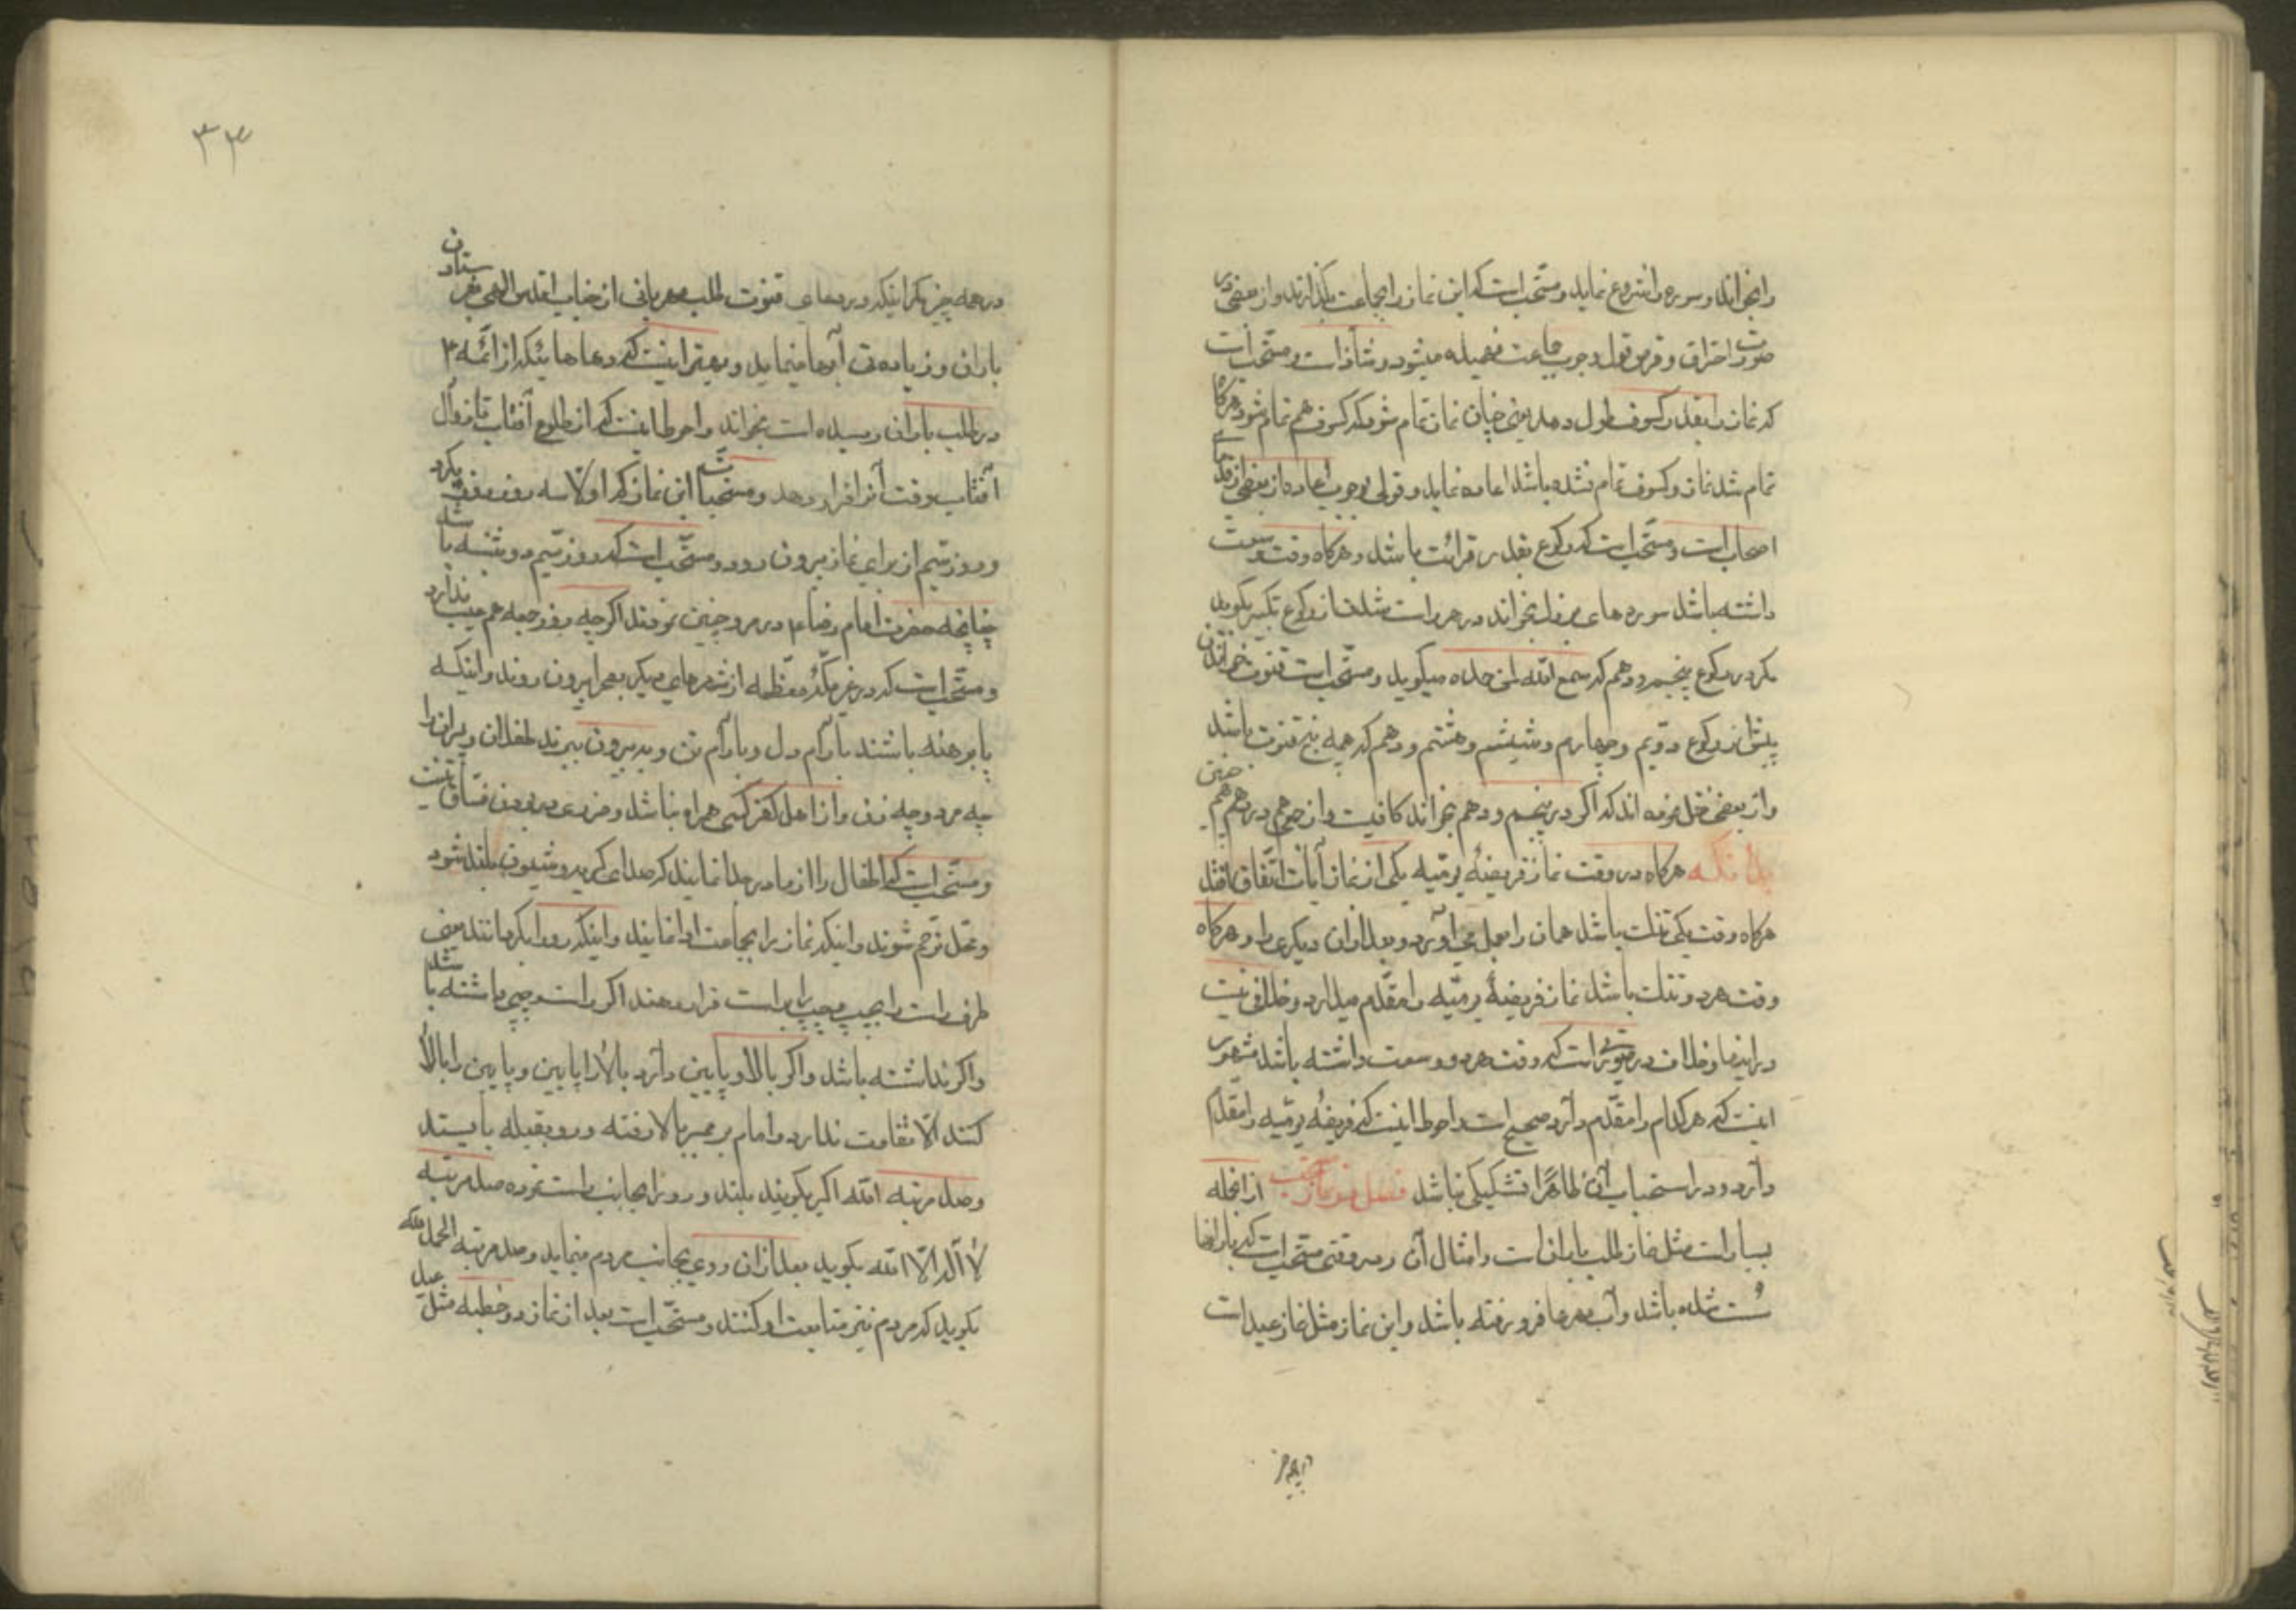 را بخواند و سوره را شروع نماید و مستحب است که این نماز را بجماعت بگذارند و از بعضی در
صورت احتراق و قرص قول وجوب جماعت فهمیده میشود و شاذ است و مستحب است
که نماز را بقدر کسوف طول دهد یعنی چنان نماز تمام شود که کسوف هم تمام شود و هرگاه
تمام شد نماز و کسوف تمام نشده باشد اعاده نماید و قولی بوجوب اعاده از بعضی از قدمای
اصحاب است و مستحب است که رکوع بقدر قرائت باشد و هرگاه وقت وسعت
داشته باشد سوره های بخواند و هر راست شدن از رکوع تکبیر بگوید
مگر در رکوع پنجم و دهم که سمع الله لمن حمده میگوید و مستحب است قنوت خواندن
پیش از رکوع دویم و چهارم و ششم و هشتم و دهم که همه پنج قنوت باشد
و از بعضی نقل نموده اند که اگر در پنجم و دهم بخواند کافیست و از جمعی در دهم هم چنین
بدانکه هرگاه در وقت نماز فریضهٔ یومیه یکی از نماز آیات اتفاق افتد
هرگاه وقت یکی تنک باشد همان را بعمل می آورد و بعد از آن دیگری را و هرگاه
وقت هر دو تنک باشد نماز فریضهٔ یومیه را مقدم میدارد و خلافی نیست
در اینها و خلاف در صورتی است که وقت هر دو وسعت داشته باشد مشهور
اینست که هر کدام را مقدم دارد صحیح است و احوط اینست که فریضهٔ یومیه را مقدم
دارد و در استحباب آن ظاهرا تشکیکی نباشد فصل نماز از آنجمله
بسیار است مثل نماز طلب باران است و امثال آن و در وقتی مستحب است که بارانها
سست شده باشد و آب نهرها فرو رفته باشد و این نماز مثل نماز عید است
در همه چیز
۳۳
در همه چیز مگر اینکه در دعای قنوت طلب مهربانی از جناب اقدس الهی بفرستادن
باران و زیادتی آبها مینماید و بهتر اینست که دعاهائیکه از ائمه ۴
در طلب باران رسیده است بخواند و احوط اینست که از طلوع آفتاب تا زوال
آفتاب وقت آنرا قرار دهد و مستحب این نماز که اولا سه روز روزه بگیرد
و روز سیم از برای نماز بیرون رود و مستحب است که روز سیم دوشنبه باشد
چنانچه حضرت امام رضا ۴ در مرو چنین نمودند اگر چه روز جمعه هم عیب ندارد
و مستحب است که در غیر مکهٔ معظمه از شهرهای دیگر بصحرا بیرون روند و اینکه
پا برهنه باشند بآرام دل و بآرام تن و بیرون ببرند طفلان و پیران را
چه مرد و چه زن و از اهل کفر کسی همراه نباشد و ضرری در بودن فساق نیست
و مستحب است که اطفال را از مادر جدا نمایند که صدای گریه و شیون بلند شود
و محل ترحم شوند و اینکه نماز را بجماعت ادا نمایند و اینکه ردا بگردانند یعنی
طرف راست را بچپ و چپ را براست قرار دهند اگر راست و چپی داشته باشد
و اگر نداشته باشد و اگر بالا و پایین دارد بالا را پایین و پایین را بالا
کنند الا تفاوت ندارد و امام بر منبر بالا رفته و رو بقبله بایستد
و صد مرتبه الله اکبر بگویند بلند و رو را بجانب راست نموده صد مرتبه
لا اله الا الله بگوید بعد از آن روی بجانب مردم مینماید و صد مرتبه الحمد لله
بگوید که مردم نیز متابعت او کنند و مستحب است بعد از نماز دو خطبه مثل عید